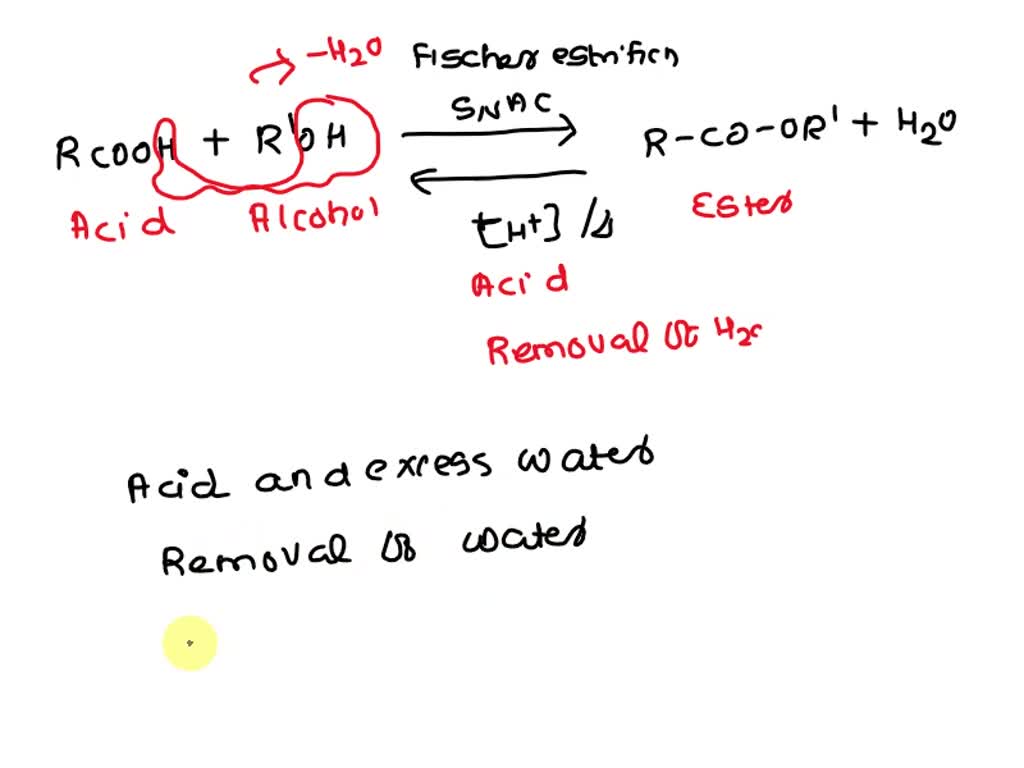 → -H2O Fischer estrificn
SNAC
RCOOH + R'OH ⇌ R-CO-OR' + H2O
Acid Alcohol Ester
[H+] /Δ
Acid
Removal of H2O
Acid and excess water
Removal of water